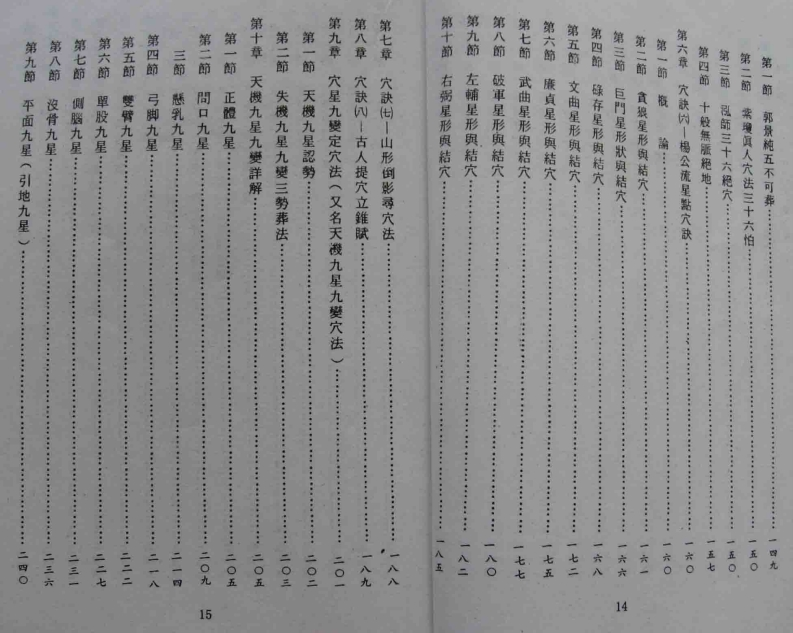 第一節 郭景純五不可葬……一四九
第二節 紫瓊眞人穴法三十六怕……一五〇
第三節 泓師三十六絕穴……一五〇
第四節 十般無脈絕地……一五七
第六章 穴訣㈥—楊公流星點穴訣……一六〇
第一節 概 論……一六〇
第二節 貪狼星形與結穴……一六一
第三節 巨門星形狀與結穴……一六六
第四節 碌存星形與結穴……一六八
第五節 文曲星形與結穴……一七二
第六節 廉貞星形與結穴……一七五
第七節 武曲星形與結穴……一七七
第八節 破軍星形與結穴……一八〇
第九節 左輔星形與結穴……一八二
第十節 右弼星形與結穴……一八五
14
第七章 穴訣㈦—山形倒影尋穴法……一八八
第八章 穴訣㈧—古人提穴立錐賦……一八九
第九章 穴星九變定穴法（又名天機九星九變穴法）……二〇一
第一節 天機九星認勢……二〇二
第二節 失機九星九變三勢葬法……二〇三
第十章 天機九星九變詳解……二〇五
第一節 正體九星……二〇五
第二節 問口九星……二〇九
三節 懸乳九星……二一四
第四節 弓脚九星……二一八
第五節 雙臂九星……二二二
第六節 單股九星……二二七
第七節 側腦九星……二三一
第八節 沒骨九星……二三六
第九節 平面九星（引地九星）……二四〇
15